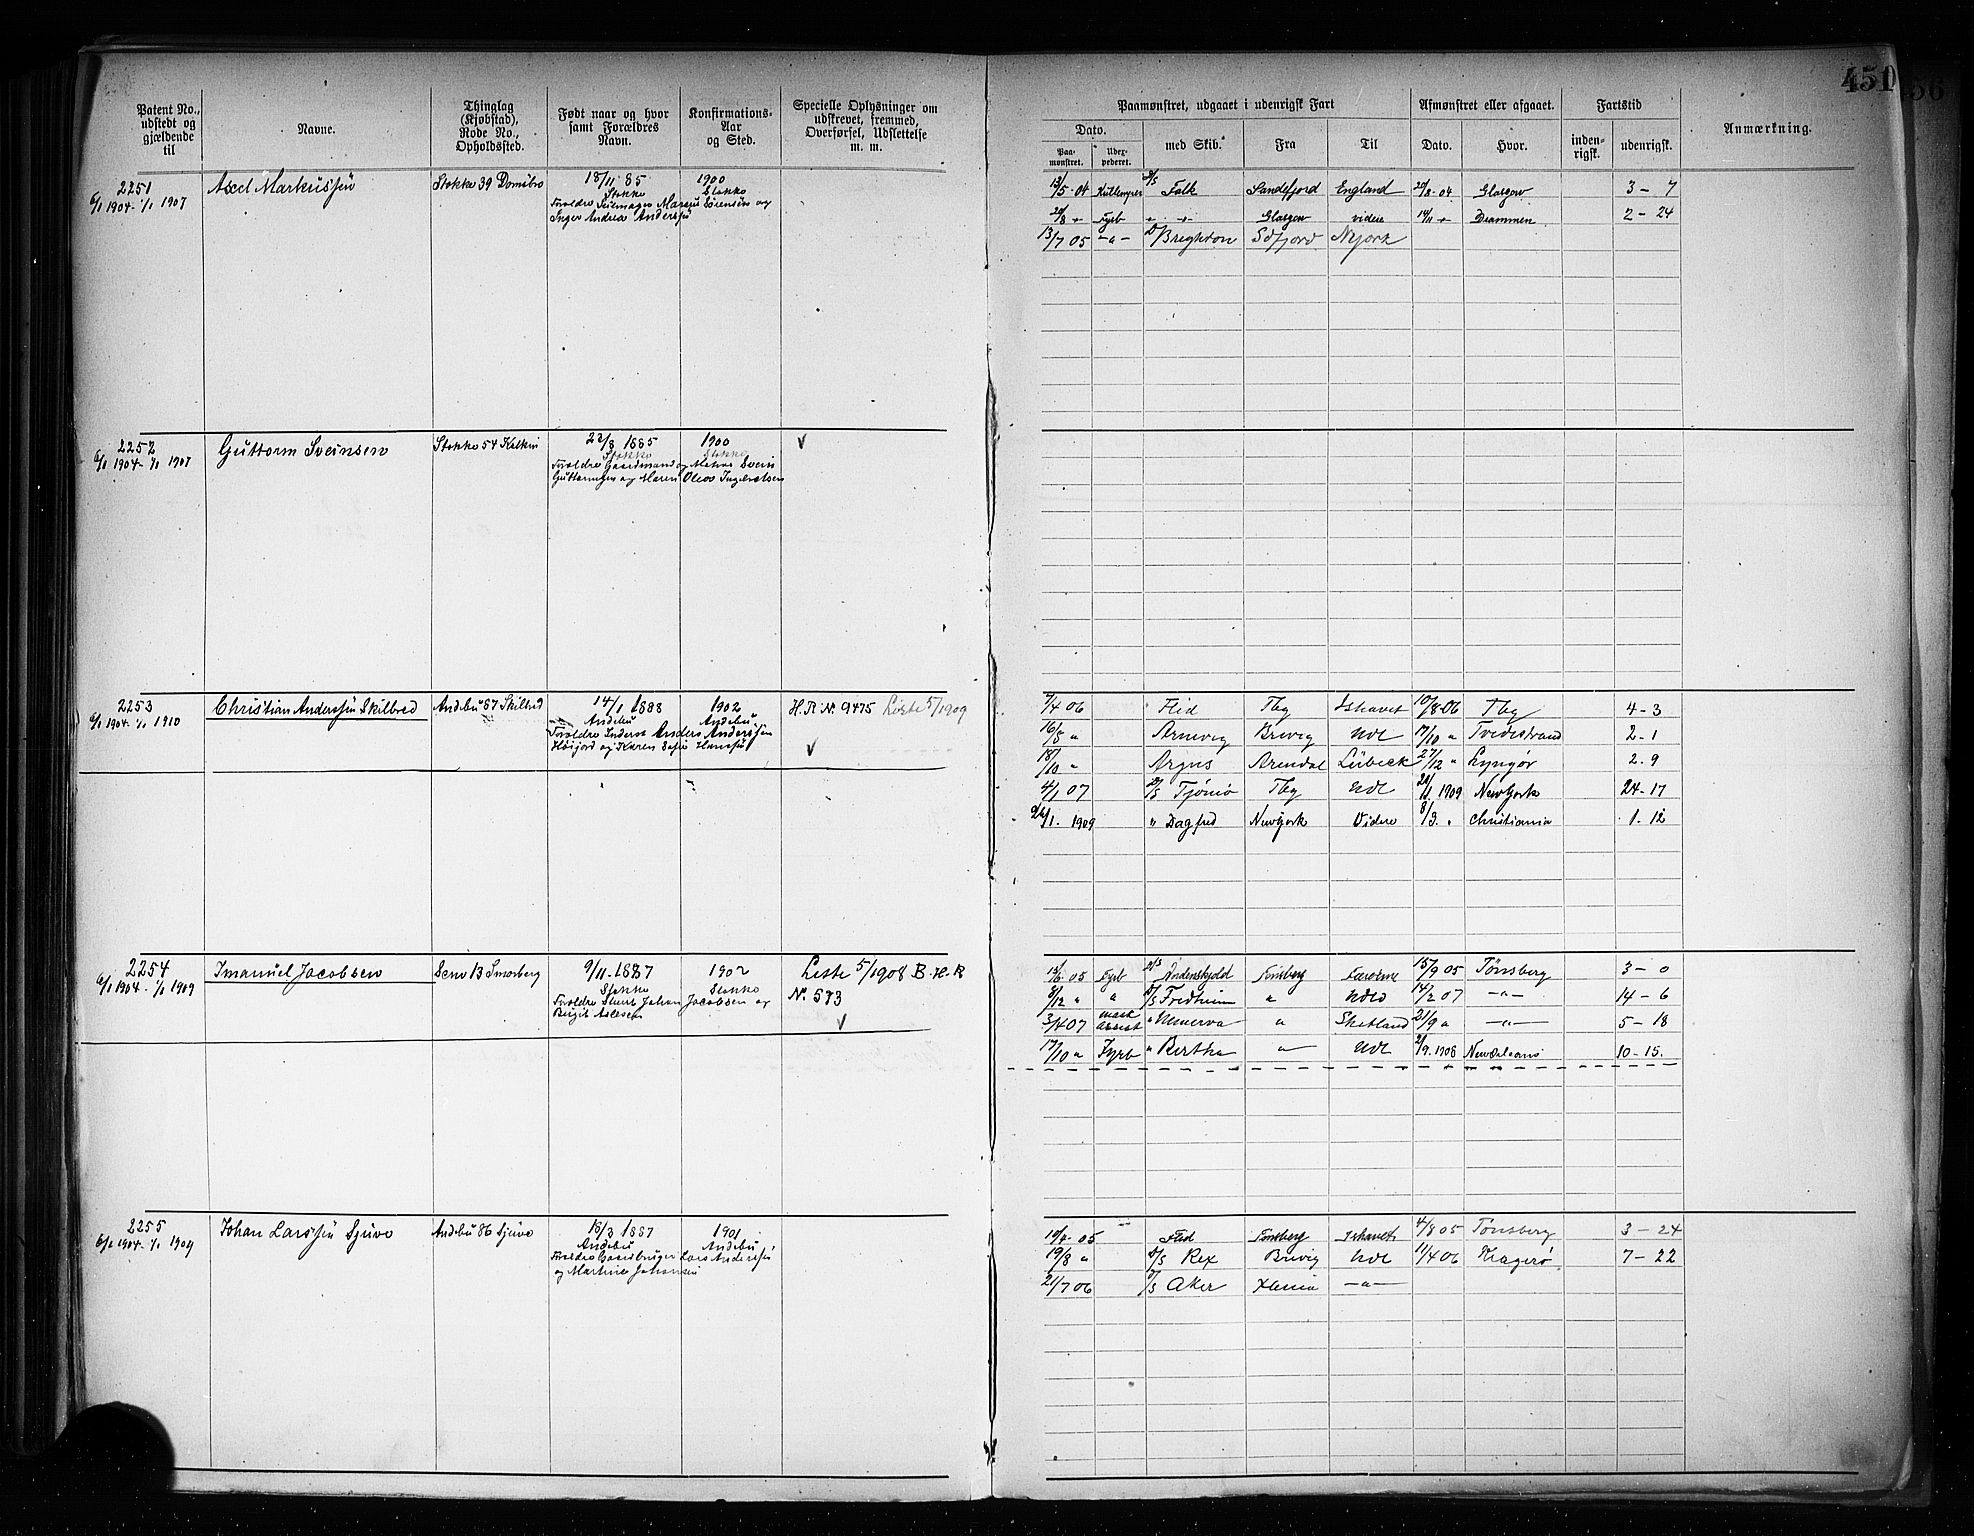 450 56
Patent No., udstedt og gjældende til
Navne.
Thinglag (Kjøbstad), Rode No., Opholdssted.
Født naar og hvor samt Forældres Navn.
Konfirmations-Aar og Sted.
Specielle Oplysninger om udskrevet, fremmed, Overførsel, Udslettelse m. m.
Paamønstret, udgaaet i udenrigsk Fart
Dato.
Paa-mønstret.
Udex-pederet.
med Skib.
Fra
Til
Afmønstret eller afgaaet.
Dato.
Hvor.
Fartstid
inden-rigsk.
udenrigsk.
Anmærkning.
2251
6/1 1904 - 1/1 1907
Axel Markussen
Stokke 39 Domibro
18/11 85
Stokke
1900
Stokke
Forældre Leilending Markus Sørensen og
Inger Andrea Anderssen
13/5 04 D/S Falk Sandefjord England 20/8 04 Glasgow 3 - 7
20/8 " Fyrb " " Glasgow videre 14/11 " Drammen 2 - 24
13/7 05 - " - D/S Breghton Sdfjord NYork
2252
6/1 1904 - 1/1 1907
Guttorm Sveinsen
Stokke 54
22/8 1885
Stokke
1900
Stokke
Forældre Gaardmand og Svein
Guttormsen og Maren Olea Ingebretsen
2253
6/1 1904 - 1/1 1910
Christian Anderssen Skilbred
Andebu 87 Skilbred
14/1 1888
Andebu
1902
Andebu
Forældre Inderst Anders Anderssen
Høijord og Karen Sofie Hanssen
H.R. N. 9475 Liste 5/1909
7/4 06 Flid Tbg Ishavet 10/8 06 Tbg 4 - 3
16/8 " Arnevig Brevig Udl 17/10 " Tvedestrand 2 - 1
18/10 " Argus Arendal Lübeck 27/12 " Lyngør 2. 9
4/1 07 D/S Tjømø Tbg Udl 21/1 1909 NewYork 24 - 17
/1. 1909 " Dagfred NewYork Videre 8/3. " Christiania 1. 12
2254
6/1 1904 - 1/1 1909
Imanuel Jacobsen
Sem 13 Smørberg
9/11 - 1887
Stokke
1902
Stokke
Forældre Johan Jacobsen og
Birgit Aslesen
Liste 5/1908 B-H-R
N. 573
13/6 05 Fyrb D/S Andenskjold Tønsberg Færøerne 15/9 05 Tønsberg 3 - 0
9/12 " " D/S Fredheim " Udld 14/2 07 - " - 14 - 6
3/4 07 mask assist " Minerva " Shetland 21/9 " - " - 5 - 18
17/10 " Fyrb " Bertha " Udl 2/9. 1908 New Orleans 10 - 15.
2255
6/1 1904 - 1/1 1909
Johan Larssen Gjuvo
Andebu 86 Gjuvo
16/3 1887
Andebu
1901
Andebu
Forældre Gaardbruger Lars Anderssen
og Martine Johansen
10/4 05 Flid Tønsberg Ishavet 4/8 05 Tønsberg 3 - 24
19/8 " D/S Rex Brevig Udl 11/4 06 Kragerø 7 - 22
21/7 06 D/S Aker - " -